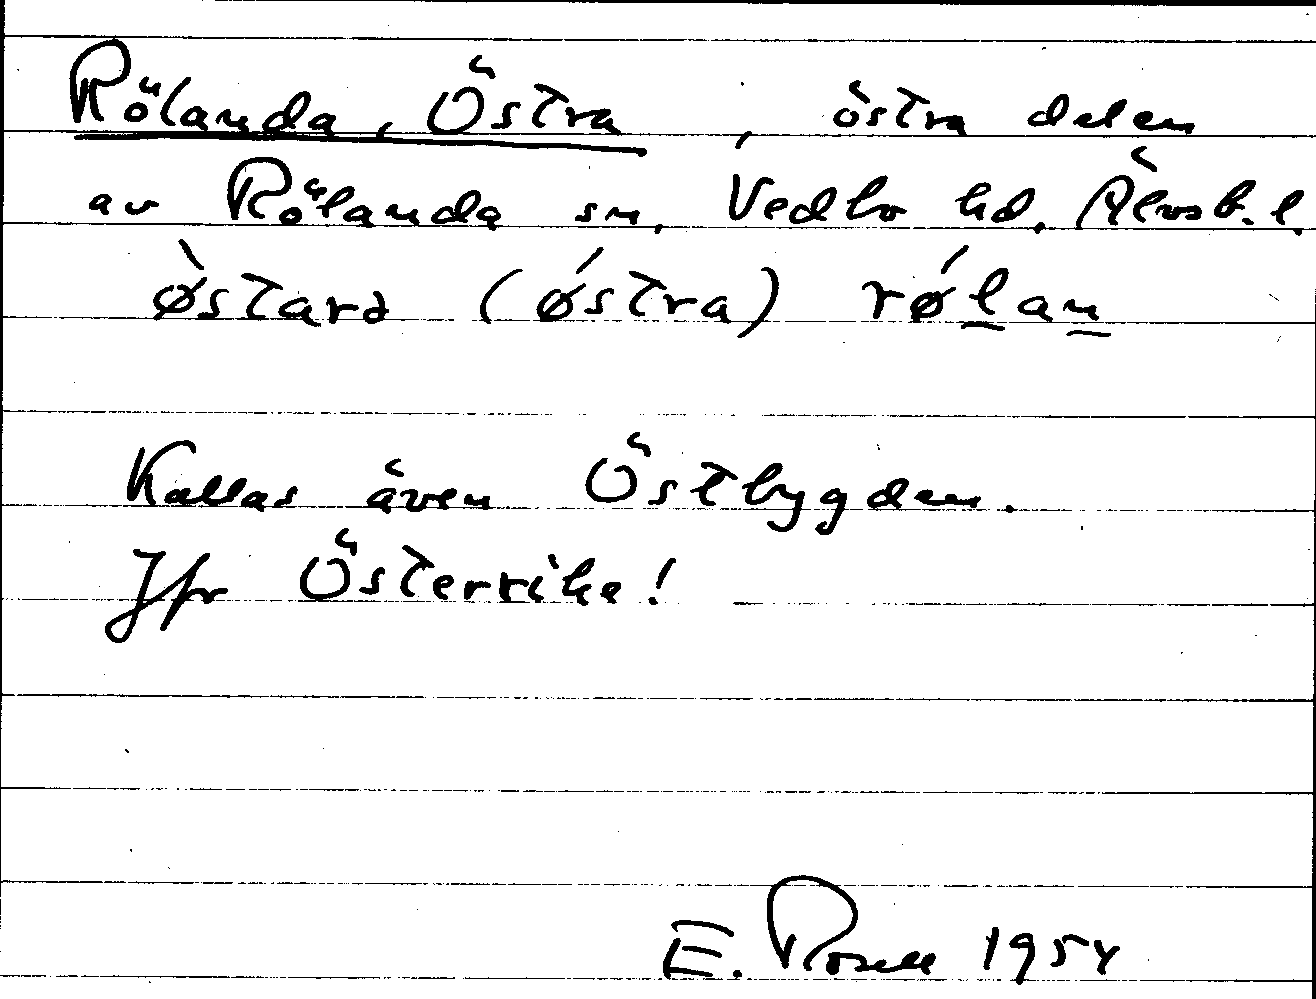 Rölanda, Östra, östra delen
av Rölanda sn, Vedbo hd, Älvsb. l.
østard (østra) rølan
Kallas även Östbygden.
Jfr Österrike!
E. Rosell 1954